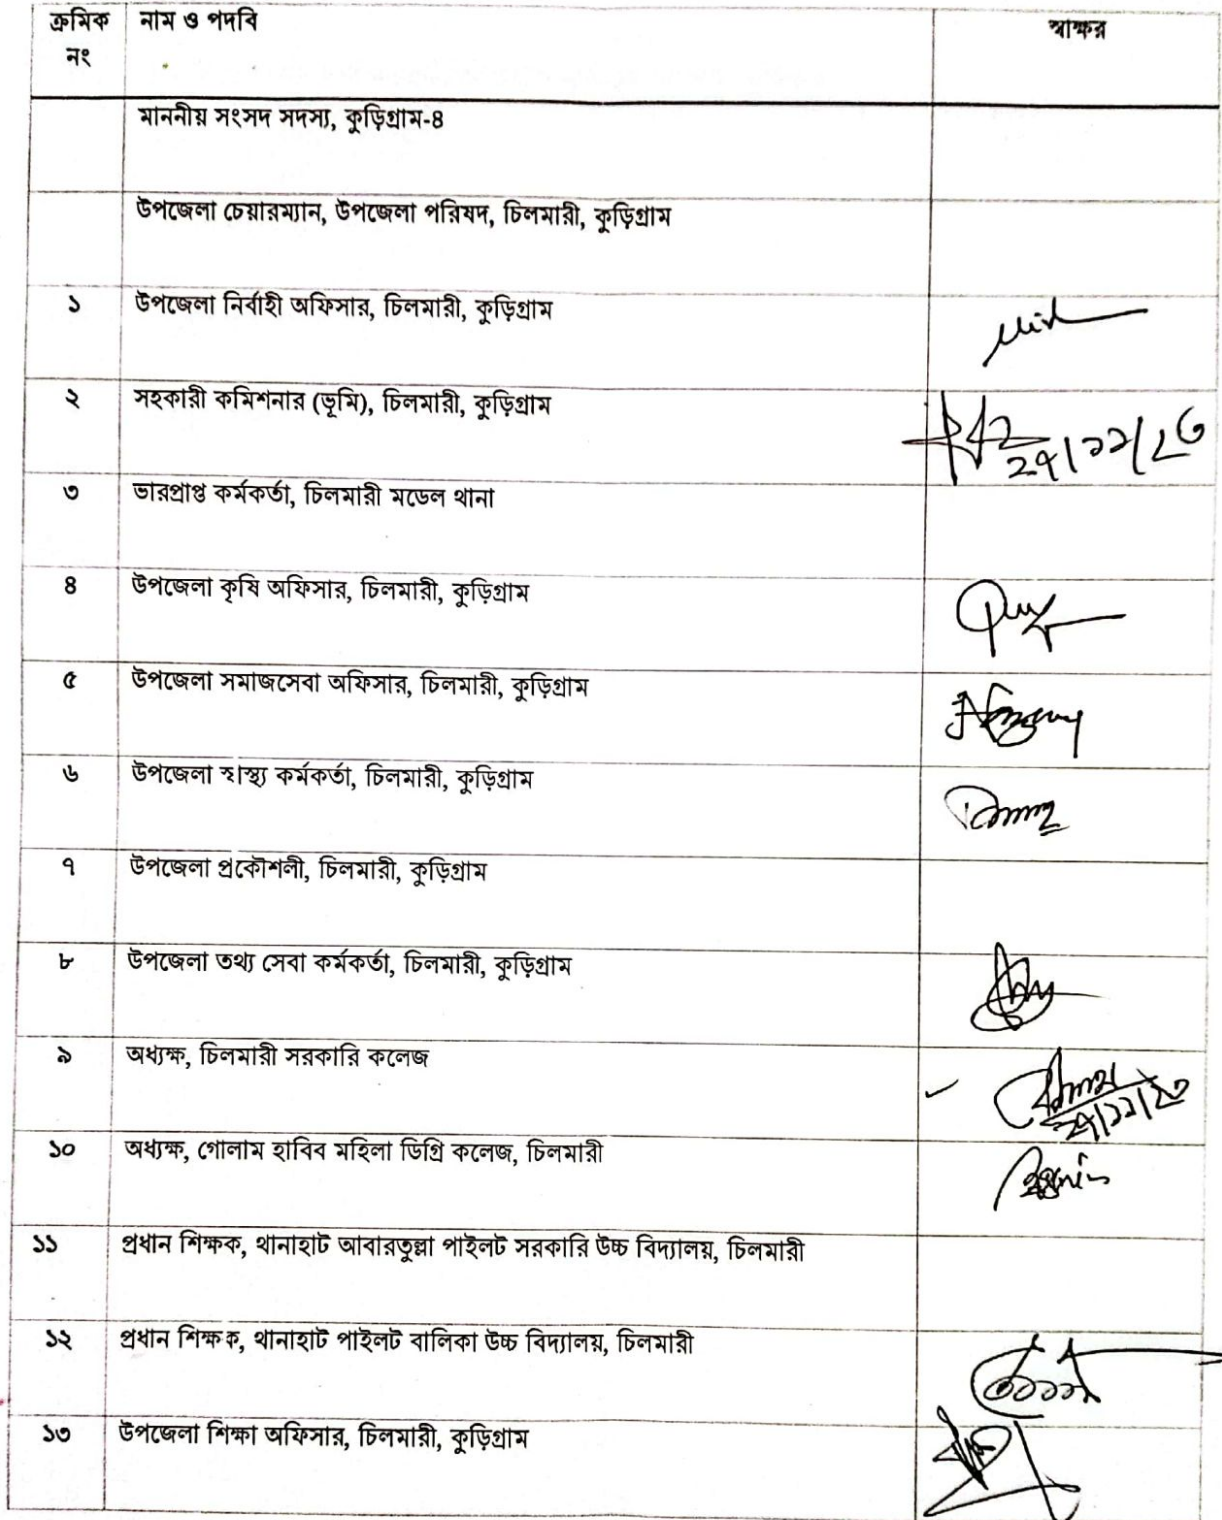 ক্রমিক নং নাম ও পদবি স্বাক্ষর
মাননীয় সংসদ সদস্য, কুড়িগ্রাম-৪
উপজেলা চেয়ারম্যান, উপজেলা পরিষদ, চিলমারী, কুড়িগ্রাম
১ উপজেলা নির্বাহী অফিসার, চিলমারী, কুড়িগ্রাম
২ সহকারী কমিশনার (ভূমি), চিলমারী, কুড়িগ্রাম
৩ ভারপ্রাপ্ত কর্মকর্তা, চিলমারী মডেল থানা
৪ উপজেলা কৃষি অফিসার, চিলমারী, কুড়িগ্রাম
৫ উপজেলা সমাজসেবা অফিসার, চিলমারী, কুড়িগ্রাম
৬ উপজেলা স্বাস্থ্য কর্মকর্তা, চিলমারী, কুড়িগ্রাম
৭ উপজেলা প্রকৌশলী, চিলমারী, কুড়িগ্রাম
৮ উপজেলা তথ্য সেবা কর্মকর্তা, চিলমারী, কুড়িগ্রাম
৯ অধ্যক্ষ, চিলমারী সরকারি কলেজ
১০ অধ্যক্ষ, গোলাম হাবিব মহিলা ডিগ্রি কলেজ, চিলমারী
১১ প্রধান শিক্ষক, থানাহাট আবারতুল্লা পাইলট সরকারি উচ্চ বিদ্যালয়, চিলমারী
১২ প্রধান শিক্ষক, থানাহাট পাইলট বালিকা উচ্চ বিদ্যালয়, চিলমারী
১৩ উপজেলা শিক্ষা অফিসার, চিলমারী, কুড়িগ্রাম